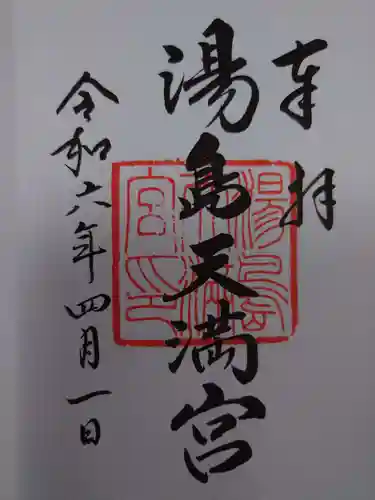 奉拝
湯島天満宮
令和六年四月一日
湯島天満宮印